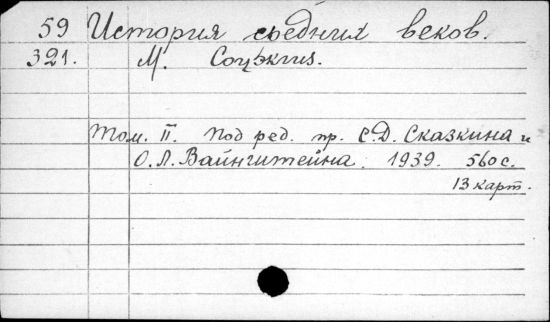 59 История средних веков.
321. М. Соцэкгиз.
Том. II. Под ред. пр. С.Д. Сказкина и
О.Л. Вайнгштейна. 1939. 560 с.
13 карт.